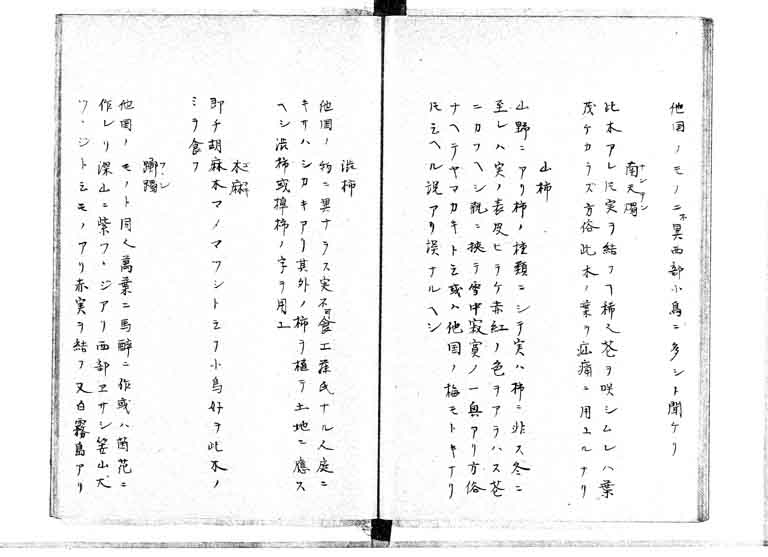 他国ノモノニ不異西部小鳥ニ多シト聞ケリ
南天燭
ナンテン
此木アレ𪜈実ヲ結フヿ稀也苍ヲ咲シムレハ葉
茂ケカラズ方俗此木ノ葉ヲ疝痛ニ用ユルナリ
山柿
山野ニアリ柿ノ種類ニシテ実ハ柿ニ非ス冬ニ
至レハ実ノ表皮ヒラケ赤紅ノ色ヲアラハス苍
ニカフヘシ瓶ニ挟テ雪中寂寞ノ一興アリ方俗
ナヘテヤマカキト云或ハ他国ノ梅モトキナリ
𪜈云ヘル説アリ誤ナルヘシ
渋柿
他国ノ物ニ異ナラス実不可食工藤氏ナル人庭ニ
キサハシカキアリ其外ノ柿ヲ植テ土地ニ應ス
ヘシ渋柿或椑柿ノ字ヲ用エ
即チ胡麻木マノマフシト云フ小鳥好ヲ此木ノ
ミヲ食フ
木麻
躑躅
ツヽシ
他国ノモノト同人萬葉ニ馬酔ニ作或ハ茵花ニ
作レリ深山ニ紫フヽジアリ西部ヱサシ笹山犬
ツヽジト云モノアリ赤実ヲ結フ又白霧島アリ